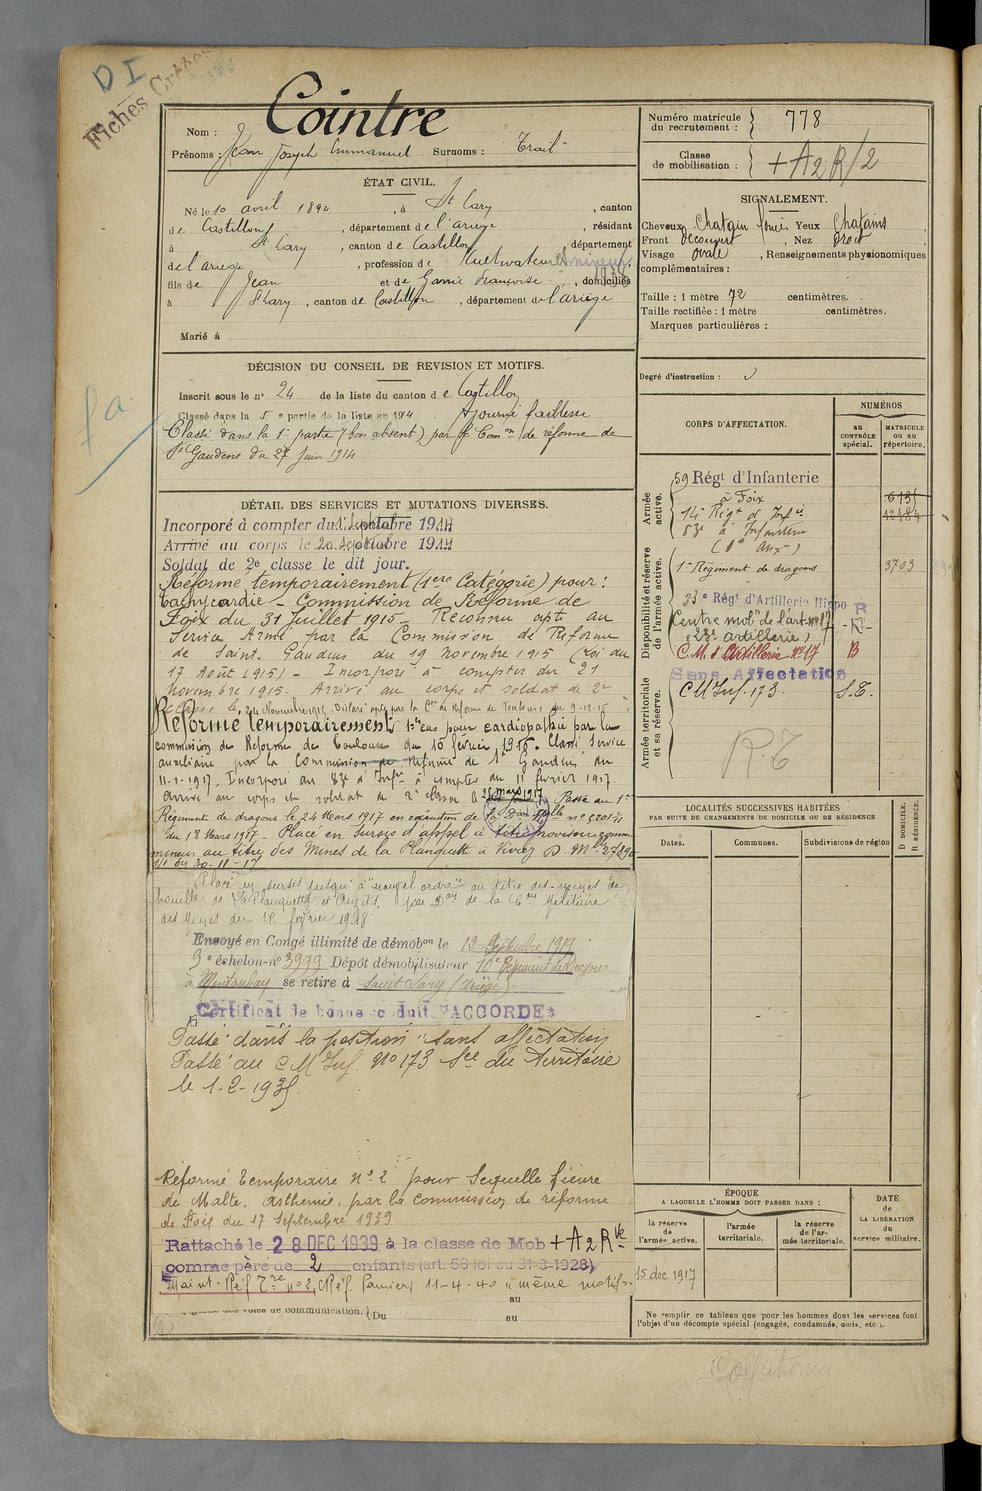 DI
Fiches Croisées
Nom : Cointre
Prénoms : Jean Joseph Emmanuel Surnoms : Trail
Numéro matricule du recrutement : 778
Classe de mobilisation : + A2R/2
ÉTAT CIVIL.
Né le 10 avril 1894, à St Lary, canton
de Castillon, département de l'ariège, résidant
à St Lary, canton de Castillon département
de l'ariège, profession de Cultivateur et mineur.
1938
fils de Jean et de Gamie Françoise, domiciliés
à St Lary, canton de Castillon, département de l'ariège
Marié à
SIGNALEMENT.
Cheveux Chatain foncé Yeux Chatains
Front découvert, Nez droit
Visage ovale, Renseignements physionomiques
complémentaires :
Taille : 1 mètre 72 centimètres.
Taille rectifiée : 1 mètre centimètres.
Marques particulières :
Degré d'instruction :
DÉCISION DU CONSEIL DE REVISION ET MOTIFS.
Inscrit sous le n° 24 de la liste du canton de Castillon
Classé dans la 5e partie de la liste en 1914 Ajourné faiblesse
Classé dans la 1e partie (bon absent) par la Com on de réforme de
St Gaudens du 27 Juin 1914
DÉTAIL DES SERVICES ET MUTATIONS DIVERSES.
Incorporé à compter du octobre 1914
Arrivé au corps le 20 octobre 1914
Soldat de 2e classe le dit jour.
Réformé temporairement (1ere Catégorie) pour :
tachycardie - Commission de Réforme de
Foix du 31 Juillet 1915 - Reconnu apte au
Service Armé par la Commission de Réforme
de Saint-Gaudens du 19 Novembre 1915 (Loi du
17 Août 1915) - Incorporé à compter du 21
novembre 1915. Arrivé au corps et soldat de 2e
classe le 24 Novembre 1915. Déclaré apte par la Con de Réforme de Toulouse du 9-12-15
Réformé temporairement 1re cat pour cardiopathie par la
commission de Réforme de Toulouse du 15 février 1916. Classé Service
auxiliaire par la Commission de Réforme de St Gaudens du
11-1-1917. Incorporé au 83e d'Infie à compter du 11 février 1917
Arrivé au corps et soldat de 2e classe le 25 Mars 1917 Passé au 1er
Régiment de dragons le 24 Mars 1917 en exécution de n° 52014
du 18 Mars 1917 - Placé en Sursis d'appel à titre provisoire comme
mineur au titre des Mines de la Planquette à Viviez D.M. n° 27890
du 30-11-17
Placé en sursis jusqu'à "nouvel ordre" au titre des mines de
houille de la Planquette et Aubin, par Don de la Con Militaire
des Mines du 18 février 1918
Envoyé en Congé illimité de démobon le 12 Septembre 1919
9e échelon-n° 3999 Dépôt démobilisateur 10e Régiment de Dragons
à Montauban se retire à Saint Lary (Ariège)
Certificat de bonne conduite "ACCORDÉ"
Passé dans la position "sans affectation"
Passé au C M Inf. N° 173 Sce du Territoire
le 1-2-1935.
Réformé temporaire N° 2 pour Sequelle fièvre
de Malte, asthenie, par la Commission de réforme
de Foix du 17 Septembre 1939
Rattaché le 28 DEC 1939 à la classe de Mob + A2R
comme père de 2 enfants (art. 58 loi du 31-3-1928)
Maint. Réf. Tre n° 2. CRéf. Pamiers 11-4-40 "même motif"
au
Du au
CORPS D'AFFECTATION.
NUMÉROS
AU CONTRÔLE spécial.
MATRICULE OU AU répertoire.
Armée active.
59 Régt d'Infanterie
à Foix
14e Régt d'Infie
83e d'Infanterie
(Son Aux)
12484
Disponibilité et réserve de l'armée active.
1er Régiment de dragons 3703
23e Régt d'Artillerie Hippo R
Centre mobn de l'art. n° 17 R
(23e artillerie)
C.M. d'Artillerie N° 17 B
Sans Affectation
Armée territoriale et sa réserve.
C M Inf. 173. S.T.
R.T
LOCALITÉS SUCCESSIVES HABITÉES
PAR SUITE DE CHANGEMENTS DE DOMICILE OU DE RÉSIDENCE
D DOMICILE.
R RÉSIDENCE.
Dates. Communes. Subdivisions de région
ÉPOQUE
A LAQUELLE L'HOMME DOIT PASSER DANS :
la réserve de l'armée active.
l'armée territoriale.
la réserve de l'armée territoriale.
DATE de LA LIBÉRATION du service militaire.
15 dec. 1917
Ne remplir ce tableau que pour les hommes dont les services font
l'objet d'un décompte spécial (engagés, condamnés, omis, etc.).